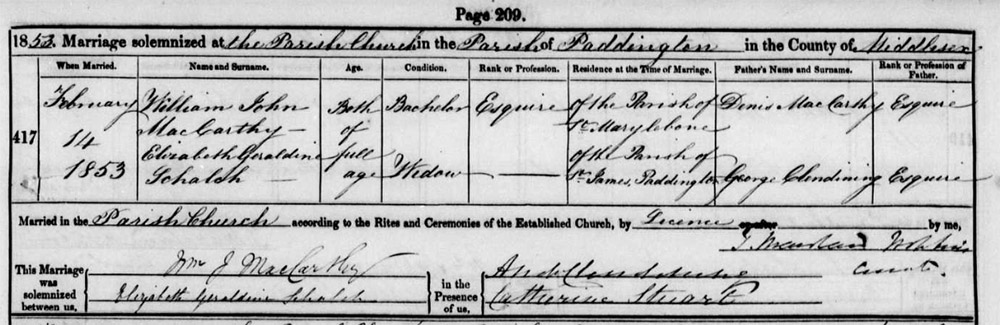 Page 209.
1853. Marriage solemnized at the Parish Church in the Parish of Paddington in the County of Middlesex
When Married. Name and Surname. Age. Condition. Rank or Profession. Residence at the Time of Marriage. Father's Name and Surname. Rank or Profession of Father.
417
February 14 1853
William John MacCarthy
Both of full age
Bachelor
Esquire
of the Parish of St. Marylebone
Denis MacCarthy
Esquire
Elizabeth Geraldine Schalch
Widow
of the Parish of St. James, Paddington
George Clendining
Esquire
Married in the Parish Church according to the Rites and Ceremonies of the Established Church, by Licence or after by me,
Curate.
This Marriage was solemnized between us, Wm J MacCarthy
Elizabeth Geraldine Schalch
in the Presence of us,
Catherine Stuart